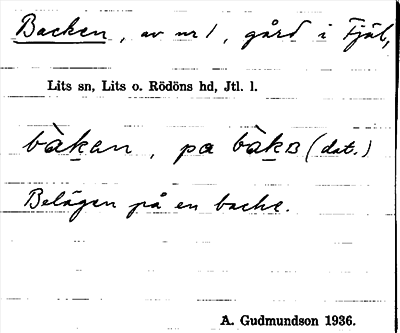 Backen, av nr 1, gård i Fjäl,
Lits sn, Lits o. Rödöns hd, Jtl. l.
bàkan, pa bàkB (dat.)
Belägen på en backe.
A. Gudmundson 1936.